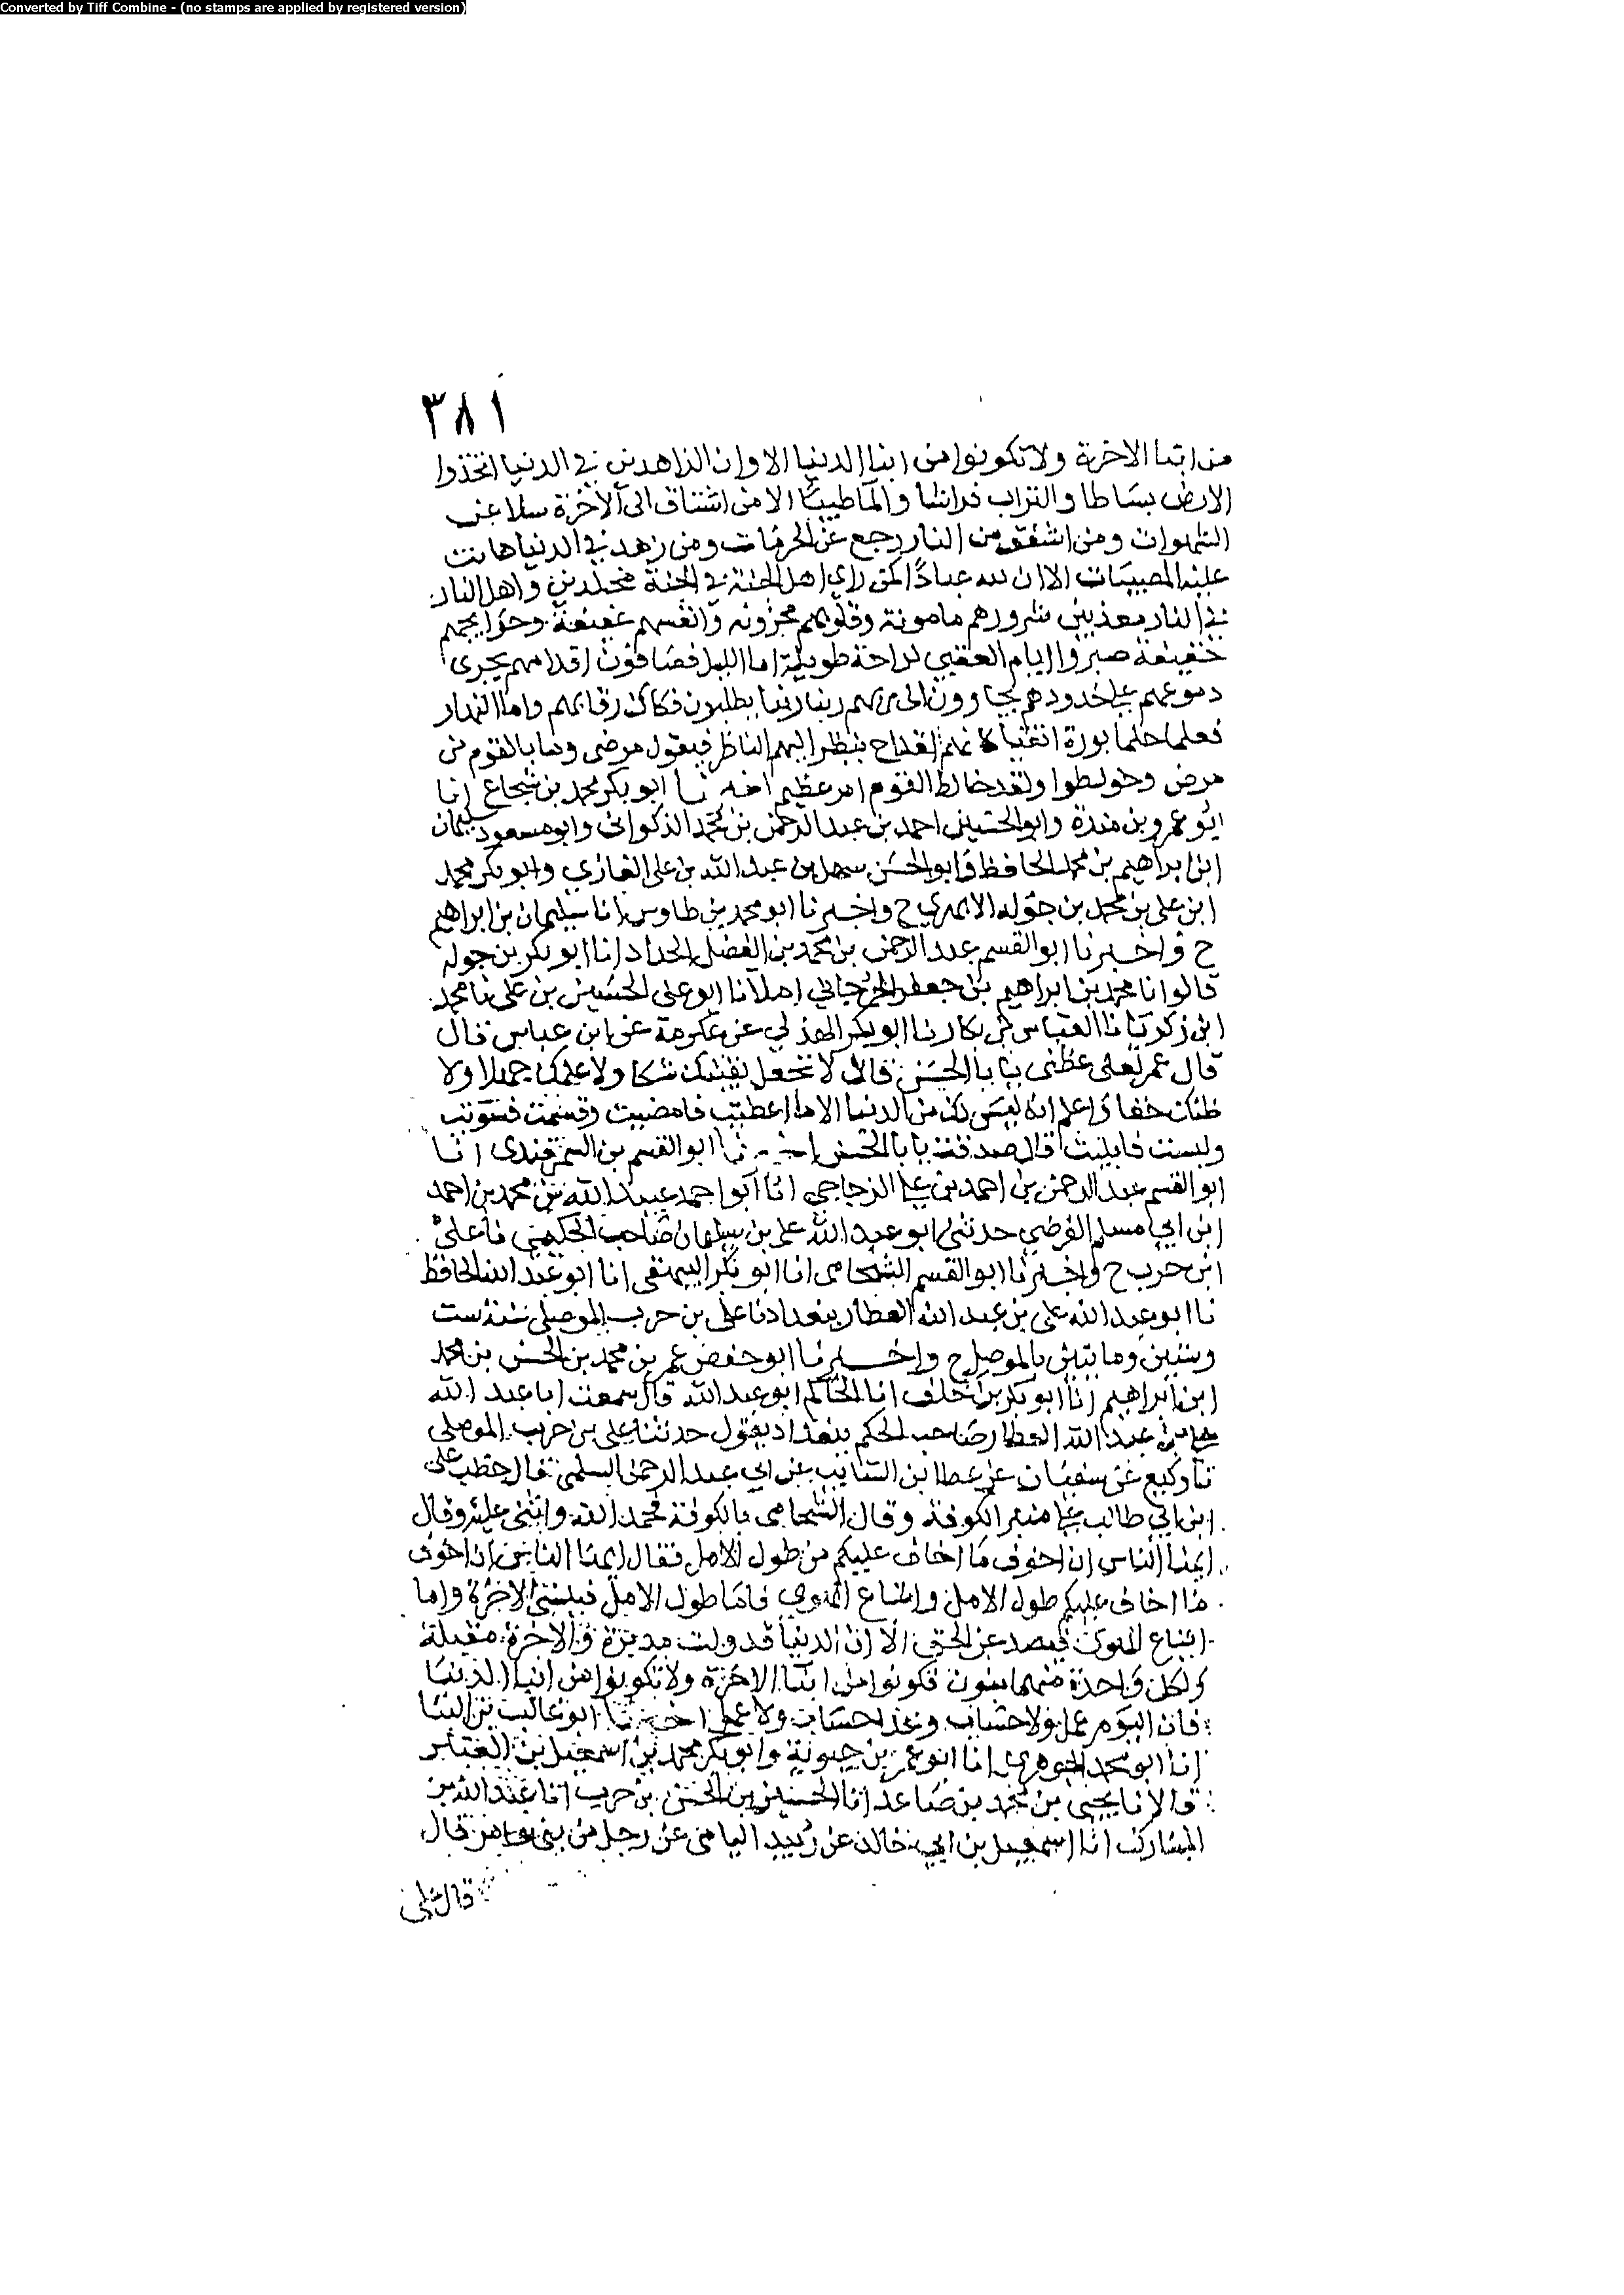 Converted by Tiff Combine - (no stamps are applied by registered version)
٣٨١
من ابنا الاخرة ولا تكونوا من ابنا الدنيا الا وان الزاهدين في الدنيا اتخذوا
الارض بساطا والتراب فراشا والما طيبا الا من اشتاق الى الآخرة سلا عن
الشهوات ومن اشفق من النار رجع عن الحرمات ومن زهد في الدنيا هانت
عليه المصيبات الا ان لله عبادا كمن راي اهل الجنة في الجنة مخلدين واهل النار
في النار معذبين شرورهم مامونة وقلوبهم محزونه وانفسهم عفيفة وحوايجهم
خفيفة صبروا ايام العقبي لراحة طويلة اما الليل فصافون اقدامهم يجرى
دموعهم على خدودهم يجارون الى ربهم ربنا ربنا يطلبون فكاك رقابهم واما النهار
فعلما حلما بررة اتقيا كانهم القداح ينظر اليهم الناظر فيقول مرضى وما بالقوم من
مرض وخولطوا ولقد خالط القوم امر عظيم اخبرنا ابو بكر محمد بن شجاع انا
ابو عمرو بن مندة وابو الحسين احمد بن عبد الرحمن بن محمد الذكوانى وابو مسعود سليمان
ابن ابراهيم بن محمد الحافظ وابو الحسن سهل بن عبد الله بن على الغازي وابو بكر محمد
ابن على بن محمد بن جوله الابهري ح واخبرنا ابو محمد بن طاوس انا سليمان بن ابراهيم
ح واخبرنا ابو القسم عبد الرحمن بن محمد بن الفضل الحداد انا ابو بكر بن جوله
قالوا نا محمد بن ابراهيم بن جعفر الجرجاني املا نا ابو على الحسين بن على نا محمد
ابن زكريا نا العباس بن بكار نا ابو بكر الهذلي عن عكرمة عن ابن عباس قال
قال عمر لعلى عظنى يا با الحسن قال لا تجعل يقينك شكا ولا علمك جهلا ولا
ظنك حقا واعلم انه ليس لك من الدنيا الا ما اعطيت فامضيت وقسمت فسويت
ولبست فابليت قال صدقت يا با الحسن اخبرنا ابو القسم بن السمرقندى انا
ابو القسم عبد الرحمن بن احمد بن على الزجاجي انا ابو احمد عبيد الله بن محمد بن احمد
ابن ابي مسلم الفرضي حدثني ابو عبد الله على بن سليمان صاحب الحكيمي نا على
ابن حرب ح واخبرنا ابو القسم الشحامى انا ابو بكر البيهقى انا ابو عبد الله الحافظ
نا ابو عبد الله على بن عبد الله العطار ببغداد نا على بن حرب الموصلى سنة ست
وستين ومايتين بالموصل ح واخبرنا ابو حفص عمر بن محمد بن الحسن بن محمد
ابن ابراهيم انا ابو بكر بن خلف انا الحاكم ابو عبد الله قال سمعت ابا عبد الله
على بن عبد الله العطار صاحب الحكم ببغداد يقول حدثنا على بن حرب الموصلى
نا وكيع عن سفيان عن عطا ابن السايب عن ابي عبد الرحمن السلمى قال خطب على
ابن ابي طالب على منبر الكوفة وقال الشحامى بالكوفة فحمد الله واثنى عليه وقال
ايها الناس ان اخوف ما اخاف عليكم من طول الامل فقال ايها الناس ان اخوف
ما اخاف عليكم طول الامل واتباع الهوى فاما طول الامل فينسى الاخرة واما
اتباع الهوى فيصد عن الحق الا ان الدنيا قد ولت مدبرة والاخرة مقبلة
ولكل واحدة منهما بنون فكونوا من ابنا الاخرة ولا تكونوا من ابنا الدنيا
فان اليوم عمل ولا حساب وغدا حساب ولا عمل اخبرنا ابو غالب بن البنا
انا ابو محمد الجوهرى انا ابو عمر بن حيوية وابو بكر محمد بن اسمعيل بن العباس
قالا نا يحيى بن محمد بن صاعد انا الحسين بن الحسن بن حرب انا عبد الله بن
المبارك انا اسمعيل بن ابي خالد عن زبيد اليامى عن رجل من بنى عامر قال
قال على